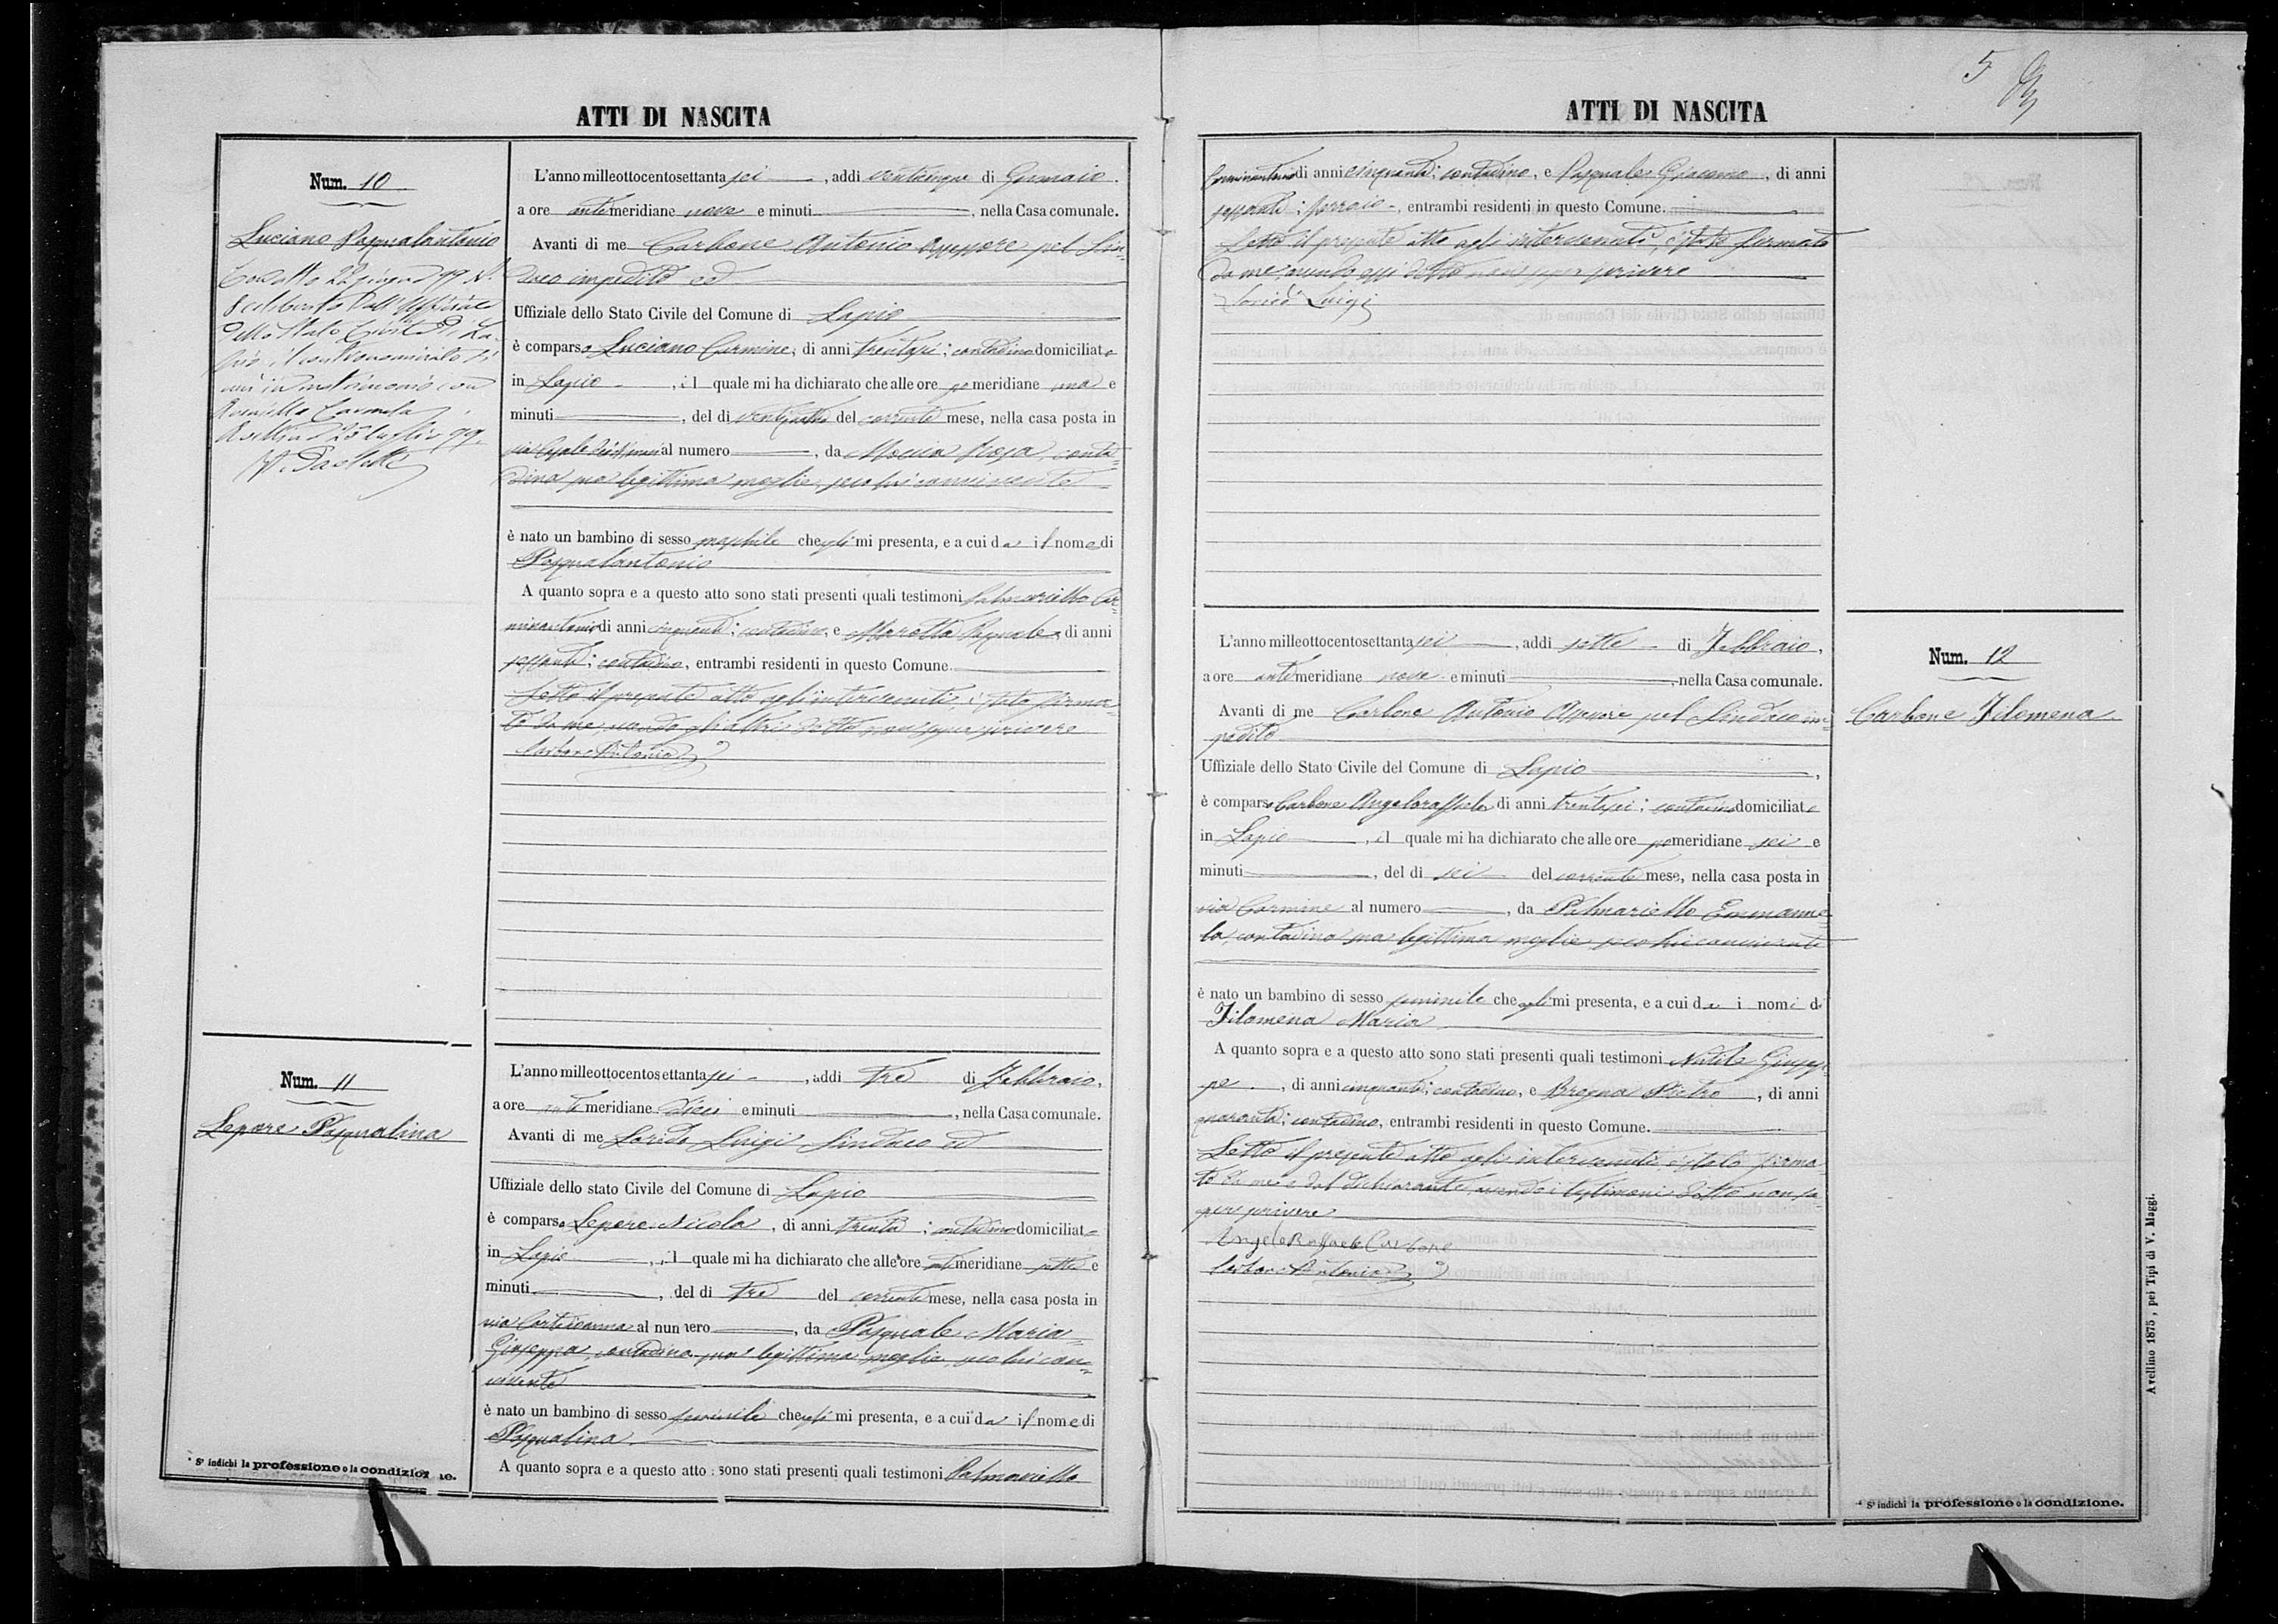 ATTI DI NASCITA
Num. 10
Luciano Pasqualantonio
Con atto 22 giugno 99 N.
8 celebrato dall'Uffiziale
dello Stato Civile di La-
pio, il contronominato si
unì in matrimonio con
Carmela
Avellino 25 luglio 99
L'anno milleottocentosettanta sei, addì venticinque di Gennaio
a ore antimeridiane nove e minuti, nella Casa comunale.
Avanti di me Carbone Antonio Assessore pel Sin-
daco impedito ed
Uffiziale dello Stato Civile del Comune di Lapio
è comparso Luciano Carmine, di anni trentasei; contadino domiciliato
in Lapio, il quale mi ha dichiarato che alle ore pomeridiane una e
minuti, del dì ventiquattro del corrente mese, nella casa posta in
via Casale al numero, da Moccia Rosa, conta-
dina sua legittima moglie, seco lui convivente
è nato un bambino di sesso maschile che egli mi presenta, e a cui dà il nome di
Pasqualantonio
A quanto sopra e a questo atto sono stati presenti quali testimoni Palmariello Car-
minantonio di anni cinquanta; contadino, e Marotta Pasquale, di anni
sessanta; contadino, entrambi residenti in questo Comune.
Letto il presente atto agli intervenuti, è stato firma-
to da me, avendo gli altri detto non saper scrivere
Carbone Antonio
Num. 11
Lepore Pasqualina
L'anno milleottocentosettanta sei, addì tre di Febbraio,
a ore antimeridiane dieci e minuti, nella Casa comunale.
Avanti di me Luigi Sindaco ed
Uffiziale dello stato Civile del Comune di Lapio
è comparso Lepore Nicola, di anni trenta; contadino domiciliato
in Lapio, il quale mi ha dichiarato che alle ore antimeridiane sette e
minuti, del dì tre del corrente mese, nella casa posta in
via al numero, da Pasquale Maria
Giuseppa, contadina sua legittima moglie, seco lui con-
vivente
è nato un bambino di sesso feminile che egli mi presenta, e a cui dà il nome di
Pasqualina
A quanto sopra e a questo atto sono stati presenti quali testimoni Palmariello
* Si indichi la professione o la condizione.
5
ATTI DI NASCITA
Carminantonio di anni cinquanta; contadino, e Pasquale Giacomo, di anni
sessanta; ferraio, entrambi residenti in questo Comune.
Letto il presente atto agli intervenuti, è stato firmato
da me, avendo essi detto non saper scrivere
Luigi
Num. 12
Carbone Filomena
L'anno milleottocentosettanta sei, addì sette di Febbraio,
a ore antimeridiane nove e minuti, nella Casa comunale.
Avanti di me Carbone Antonio Assessore pel Sindaco im-
pedito
Uffiziale dello Stato Civile del Comune di Lapio,
è comparso Carbone Angeloraffaele di anni trentasei; contadino domiciliato
in Lapio, il quale mi ha dichiarato che alle ore pomeridiane sei e
minuti, del dì sei del corrente mese, nella casa posta in
via Carmine al numero, da Palmariello Emmanue-
la, contadina sua legittima moglie, seco lui convivente
è nato un bambino di sesso feminile che egli mi presenta, e a cui dà i nomi di
Filomena Maria
A quanto sopra e a questo atto sono stati presenti quali testimoni Giusep-
pe, di anni cinquanta; contadino, e Brogna Pietro, di anni
quaranta; contadino, entrambi residenti in questo Comune.
Letto il presente atto agli intervenuti, è stato firma-
to da me e dal dichiarante, avendo i testimoni detto non sa-
per scrivere
Angelo Raffaele Carbone
Carbone Antonio
* Si indichi la professione o la condizione.
Avellino 1875, pei Tipi di V. Maggi.